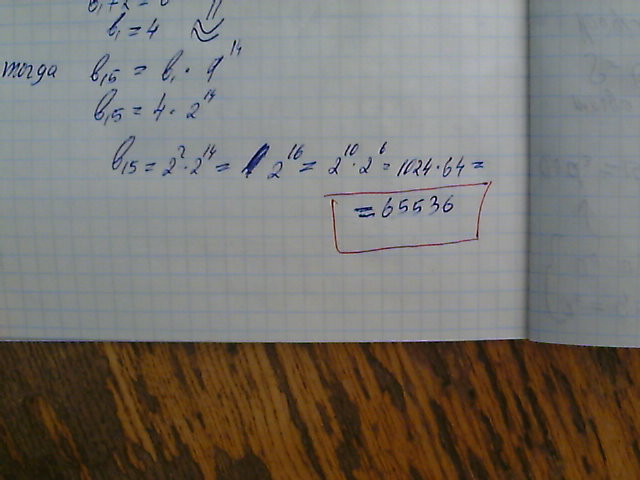 b₁ = 4
тогда b₁₅ = b₁ · q¹⁴
b₁₅ = 4 · 2¹⁴
b₁₅ = 2² · 2¹⁴ = 2¹⁶ = 2¹⁰ · 2⁶ = 1024 · 64 =
= 65536